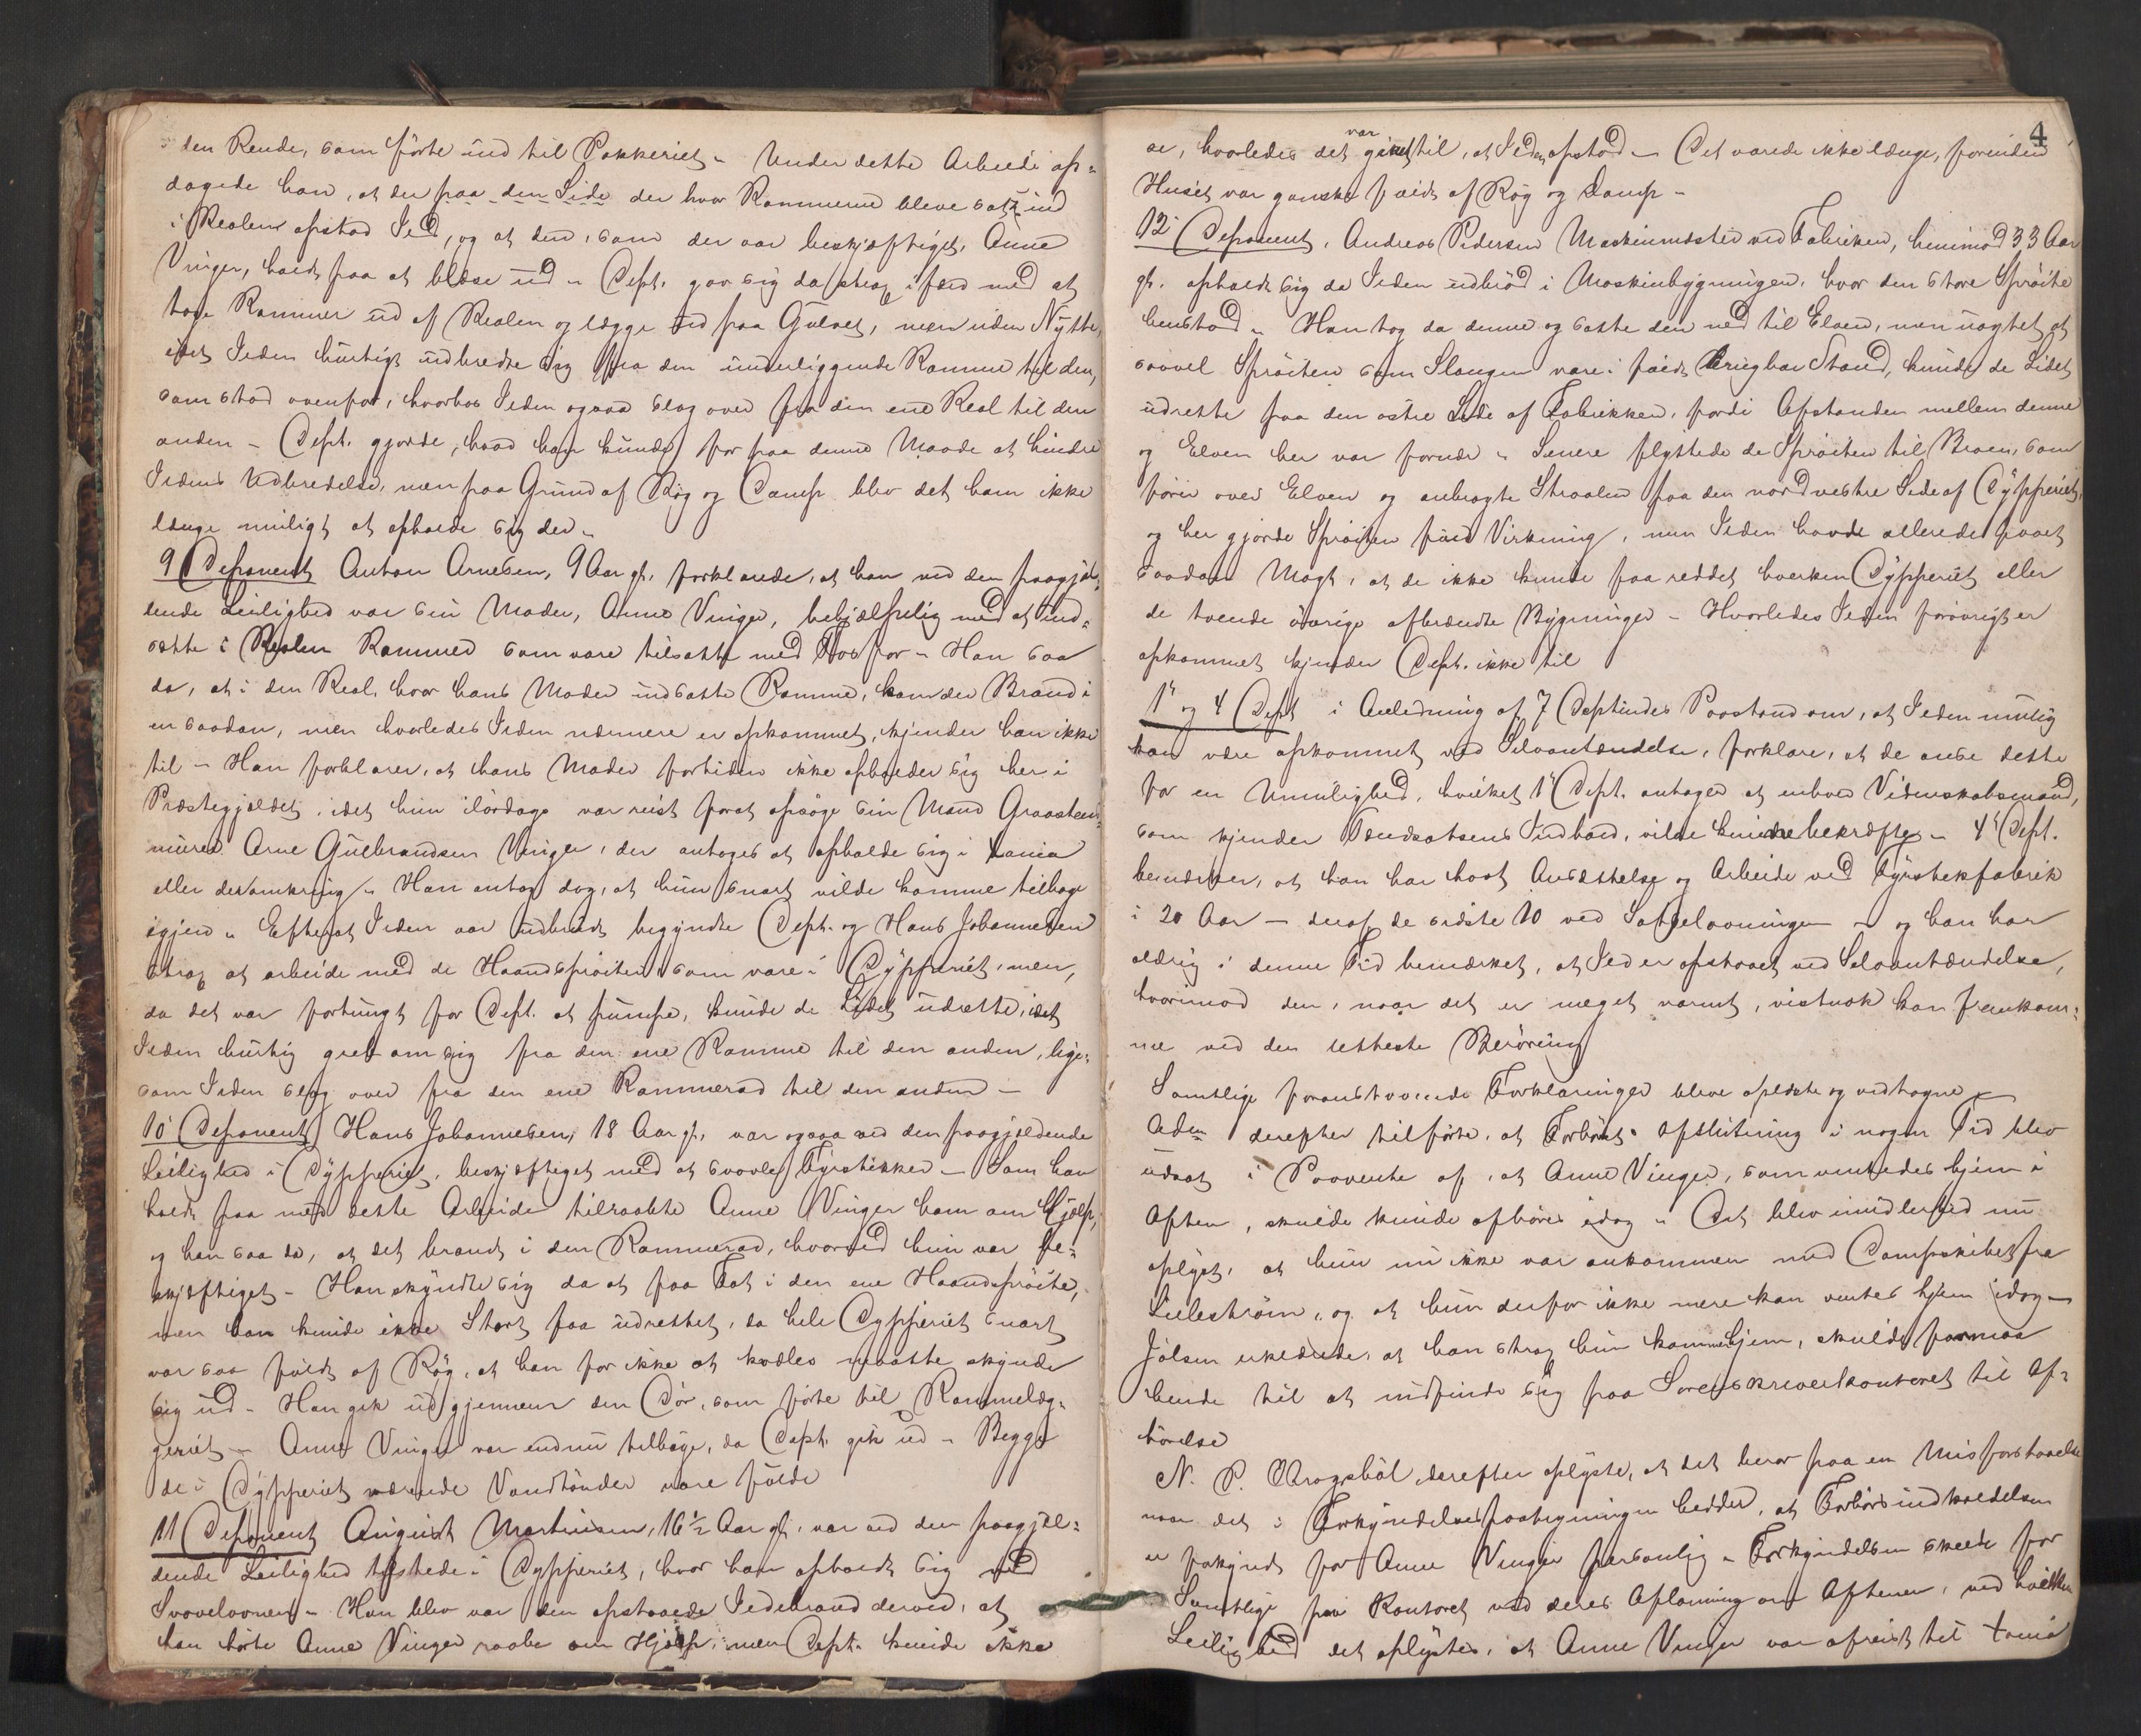 den Rende, som førte ind til Pakkeriet - Under dette Arbeide op-
dagede han, at der paa den Side der hvor Rammerne bleve satte ind
i Realen opstod Ild, og at den, som der var beskjæftiget, Anne
Vinger, holdt paa at blæse ud - Dept. gav sig da strax ifærd med at
tage Rammer ud af Realen og lægge ned paa Gulvet, men uden Nytte,
idet Ilden hurtigt udbredte sig fra den underliggende Ramme til den,
som stod ovenfor, hvorhos Ilden ogsaa slog over fra den ene Real til den
anden - Dept. gjorde, hvad han kunde for paa denne Maade at hindre
Ildens Udbredelse, men paa Grund af Røg og Damp blev det ham ikke
længe muligt at opholde sig der -
9 Deponent Anton Arnesen, 9 Aar gl. forklarede, at han ved den paagjæl-
dende Leilighed var sin Moder, Anne Vinger, behjælpelig med at ind-
sætte i Realen Rammer som vare tilsatte med Fosfor - Han saa
da, at i den Real, hvor hans Moder indsatte Ramme, kom der Brand i
en saadan, men hvorledes Ilden nærmere er opkommet, kjender han ikke
til - Han forklarer, at hans Moder fortiden ikke opholder sig her i
Præstegjældet, idet hun ilørdags var reist forat opsøge sin Mand Graasten-
murer Arne Gulbrandsen Vinger, der antoges at opholde sig i
eller deromkring - Han antog dog, at hun snart vilde komme tilbage
igjen - Efterat Ilden var udbrudt begyndte Dept. og Hans Johannesen
strax at arbeide med de Haandsprøiter som vare i Dypperiet, men,
da det var fortungt for Dept. at pumpe, kunde de Lidet udrette, idet
Ilden hurtig greb om sig fra den ene Ramme til den anden, lige-
som Ilden slog over fra den ene Rammerad til den anden -
10 Deponent Hans Johannesen, 18 Aar gl, var ogsaa ved den paagjældende
Leilighed i Dypperiet, beskjæftiget med at svovle Fyrstikker - Som han
holdt paa med dette Arbeide tilraabte Anne Vinger ham om Hjælp,
og han saa da, at det brændt i den Rammerad, hvorved hun var be-
skjæftiget - Han skyndte sig da at faa Fat i den ene Haandsprøite,
men han kunde ikke Stort faa udrettet, da hele Dypperiet snart
var saa fuldt af Røg, at han for ikke at kvæles maatte skynde
sig ud - Han gik ud gjennem den Dør, som førte til Rammelæg-
geriet - Anne Vinger var endnu tilbage, da Dept. gik ud - Begge
de i Dypperiet værende Vandtønder vare fulde
11 Deponent August Martinsen, 16 1/2 Aar gl, var ved den paagjæl-
dende Leilighed tilstede i Dypperiet, hvor han opholdt sig ved
Svovelovnen - Han blev var den opstaaede Ildebrand derved, at
han hørte Anne Vinger raabe om Hjælp, men Dept. kunde ikke
4
se, hvorledes det var gaaet til, at Ilden opstod - Det varede ikke længe, forinden
Huset var ganske fuldt af Røg og Damp -
12 Deponent, Andreas Pedersen Maskinmester ved Fabriken, henimod 33 Aar
gl. opholdt sig da Ilden udbrød i Maskinbygningen, hvor den store Sprøite
henstod - Han tog da denne og satte den ned til Elven, men uagtet at
saavel Sprøiten som Slangen vare i fuldt brugbar Stand, kunde de Lidet
udrette paa den østre Side af Fabrikken, fordi Afstanden mellem denne
og Elven her var fornær - Senere flyttede de Sprøiten til Broen, som
fører over Elven og anbragte Straalen paa den nordvestre Side af Dypperiet,
og her gjorde Sprøiten fuld Virkning, men Ilden havde allerede faaet
saadan Magt, at de ikke kunde faa reddet hverken Dypperiet eller
de tvende øvrige afbrændte Bygninger - Hvorledes Ilden forøvrigt er
opkommet kjender Dept. ikke til
1' og 4 Dept i Anledning af 7 Deptindes Paastand om, at Ilden mulig
kan være opkommet ved Selvantændelse, forklare, at de anse dette
for en Umulighed, hvilket 1' Dept. antager at enhver Videnskabsmand,
som kjender Tændsatsens Indhold, vilde kunne bekræfte - 4' Dept.
bemærker, at han har havt Ansættelse og Arbeide ved Fyrstikfabrik
i 20 Aar - deraf de sidste 10 ved - og han har
aldrig i denne Tid bemærket, at Ild er opstaaet ved Selvantændelse,
hvorimod den, naar det er meget varmt, vistnok kan fremkom-
me ved den letteste Berøring
Samtlige foranstaaende Forklaringer bleve oplæste og vedtagne
Adm derefter tilførte, at Forhørets Afslutning i nogen Tid blev
udsat i Paavente af, at Anne Vinger, som ventedes hjem i
Aften, skulde kunde afhøres idag - Det blev imidlertid nu
oplyst, at hun nu ikke var ankommen med Dampskibet fra
Lillestrøm, og at hun derfor ikke mere kan ventes hjem idag -
Jølsen erklærede, at han strax hun kommer hjem, skulde formaa
hende til at indfinde sig paa Sorenskriverkontoret til Af-
hørelse
N. P. derefter oplyste, at det beror paa en Misforstaaelse
naar det i Forkyndelsespaategningen hedder, at Forhørsindkaldelsen
er forkyndt for Anne Vinger personlig - Forkyndelsen skede for
Samtlige paa Kontoret ved deres Aflønning om Aftenen, ved hvilken
Leilighed det oplystes, at Anne Vinger var afreist til